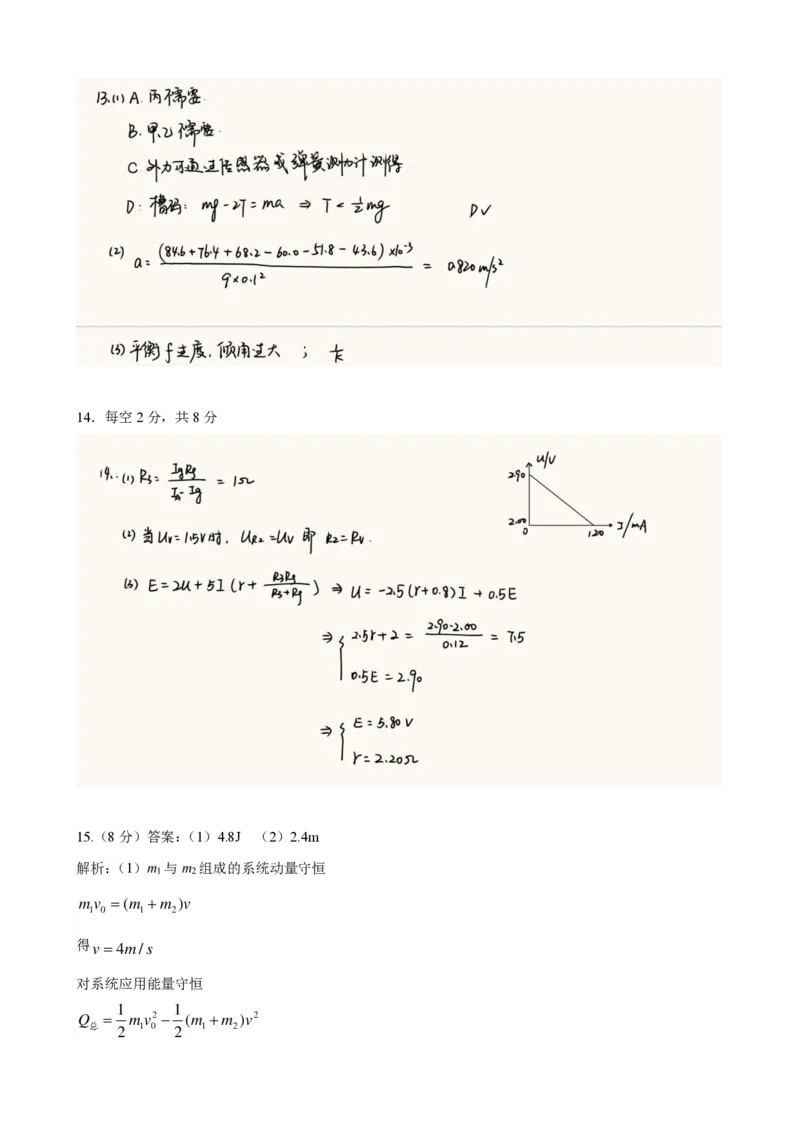 13.(1) A. 丙不需要.
B. 甲乙不需要.
C. 外力可通过传感器或弹簧测力计测得
D: 槽码: mg-2T=ma ⇒ T<1/2mg DV
(2) a= (84.6+76.4+68.2-60.0-51.8-43.6)×10⁻³ / 9×0.1² = 0.820m/s²
(3) 平衡f过度,倾角过大 ; 大
14．每空 2 分，共 8 分
14.(1) R₃= IgRg / I_A-Ig = 1Ω
U/V
2.90
2.00
0
120
I/mA
(2) 当Uv=1.5V时, U_R2=Uv 即 R₂=Rv.
(3) E=2U+5I(r+ R₃Rg / R₃+Rg) ⇒ U=-2.5(r+0.8)I+0.5E
⇒ { 2.5r+2 = 2.90-2.00 / 0.12 = 7.5
0.5E=2.90
⇒ { E=5.80V
r=2.20Ω
15.（8 分）答案：（1）4.8J （2）2.4m
解析：（1）m₁ 与 m₂ 组成的系统动量守恒
m₁v₀=(m₁+m₂)v
得 v=4m/s
对系统应用能量守恒
Q总 = 1/2 m₁v₀² − 1/2 (m₁+m₂)v²